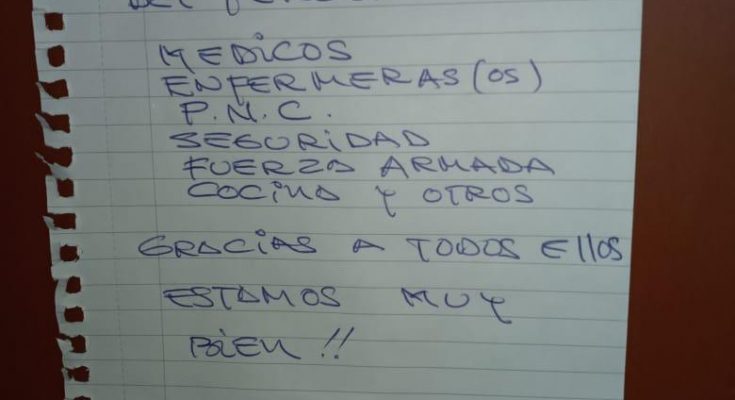 DEL
MEDICOS
ENFERMERAS (OS)
P.N.C.
SEGURIDAD
FUERZA ARMADA
COCINA Y OTROS
GRACIAS A TODOS ELLOS
ESTAMOS MUY
BIEN !!